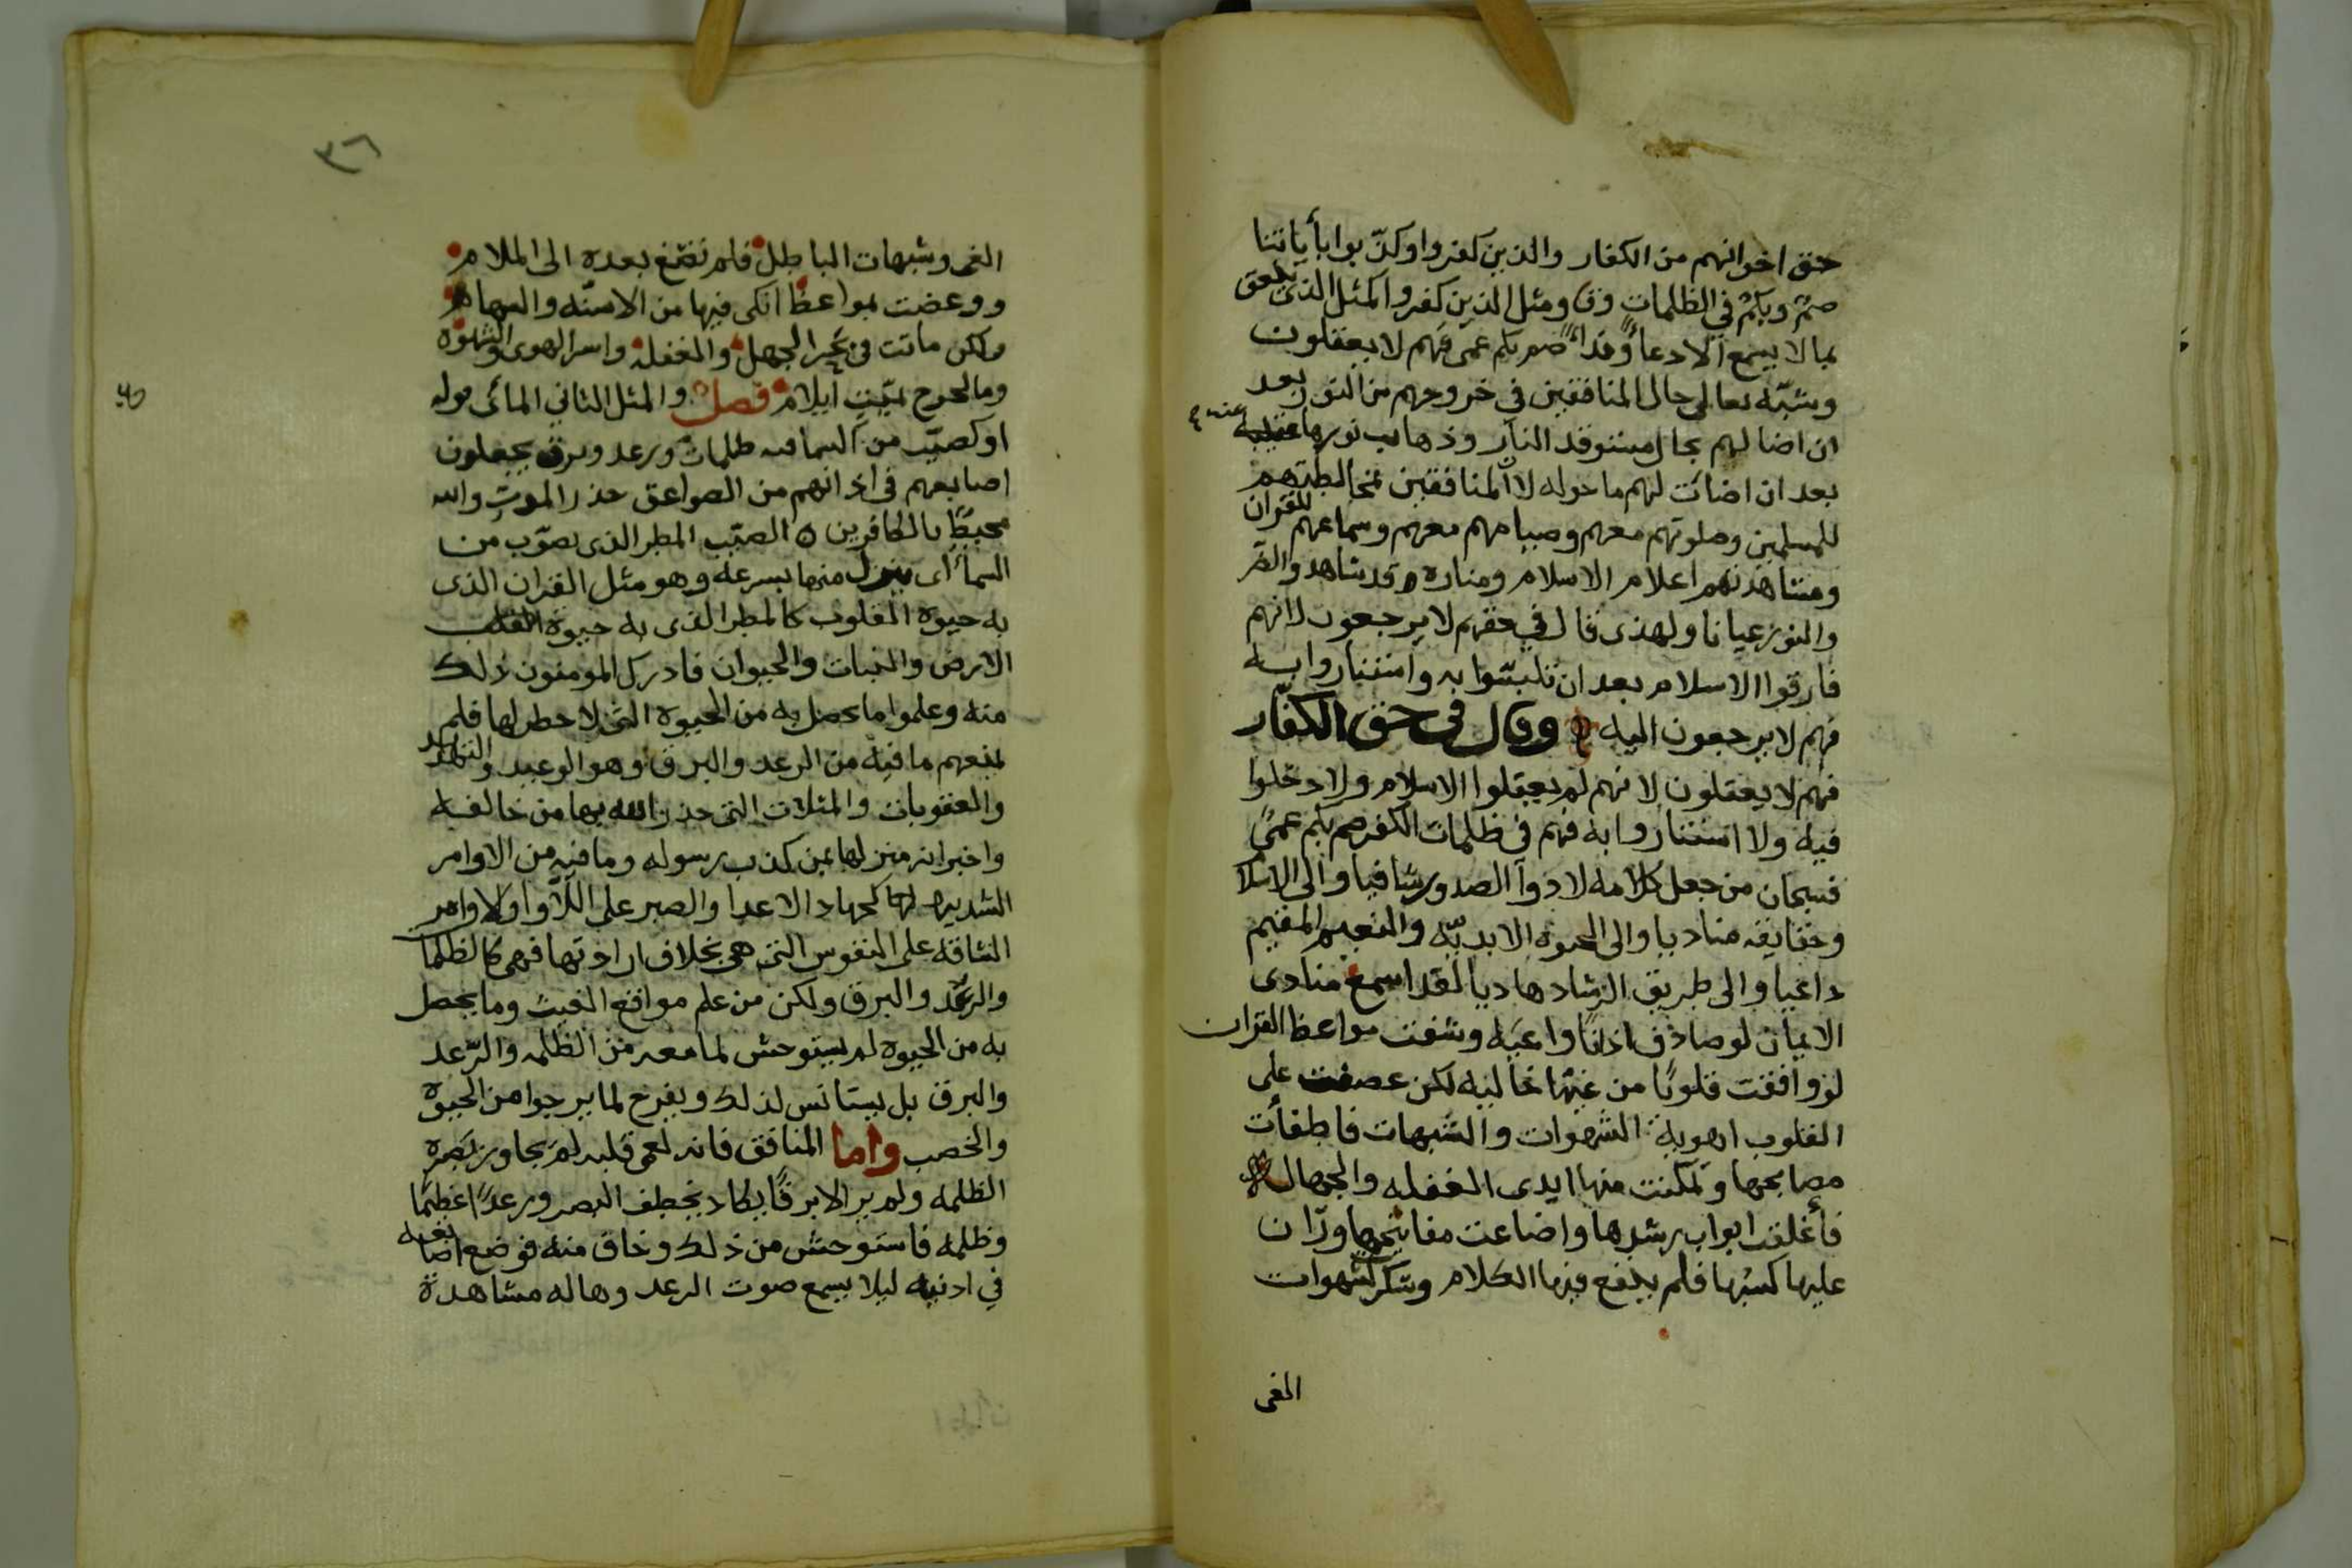 حق اخوانهم من الكفار والذين كفروا وكذّبوا بأياتنا
صمٌ وبكمٌ في الظلمات وق ومثل الذين كفروا كمثل الذى ينعق
بما لا يسمع الا دعاءً وندآءً صم بكم عمى فهم لا يعقلون
وشبّه تعالى حال المنافقين في خروجهم من النور بعد
ان اضا لهم بحال مستوقد النار وذهاب نورها عنه
بعد ان اضائت لهم ما حوله لان المنافقين بمخالطتهم
للمسلمين وصلوتهم معهم وصيامهم معهم وسماعهم للقران
ومشاهدتهم اعلام الاسلام ومناره وقد شاهدوا الضّو
والنور عيانا ولهذى قال في حقهم لا يرجعون لانهم
فارقوا الاسلام بعد ان تلبسّوا به واستناروا به
فهم لا يرجعون اليه وقال في حق الكفّار
فهم لا يعقلون لانهم لم يعقلوا الاسلام ولا دخلوا
فيه ولا استناروا به فهم فى ظلمات الكفر صم بكم عمىً
فسبحان من جعل كلامه لادوآ الصدور شافيا والى الاسلا
وحقايقه مناديا والى الحيوه الابديّه والنعيم المقيم
داعيا والى طريق الرشاد هاديا لقد اسمع منادى
الايمان لو صادف اذانًا واعيَه وشفت مواعظ القران
لو وافقت قلوبًا من غيّها خاليه لكن عصفت على
القلوب اهوية الشهوات والشبهات فاطفأت
مصابيحها وتمكنت منها ايدى الغفله والجهاله
فأغلقت ابواب رشدها واضاعت مفاتيحها وران
عليها كسبُها فلم ينفع فيها الكلام وسكرت بشهوات
الغى
٣٦
الغى وشبهات الباطل فلم تضغ بعده الى الملام
ووعضت بمواعظ انكى فيها من الاسنّه والسهام
ولكن ماتت فى بحر الجهل والغفلة واسر الهوى والشهوة
وما لجرح بميّتٍ ايلام فصل والمثل الثاني المائى قوله
او كصيّب من السما فيه ظلمات ورعد وبرق يجعلون
اصابعهم فى اذانهم من الصواعق حذر الموت والله
محيطٌ بالكافرين ٥ الصيّب المطر الذى يصوّب من
السمأ اى ينزل منها بسرعه وهو مثل القران الذى
به حيوة القلوب كالمطر الذى به حيوة
الارض والنبات والحيوان فادرك المومنون ذلك
منه وعلموا ما يحصل به من الحيوه التى لا خطر لها فلم
يمنعهم ما فيه من الرعد والبرق وهو الوعيد والتهديد
والعقوبات والمثلات التى حذر الله بها من خالفه
واخبر انه منزلها بمن كذب رسوله وما فيه من الاوامر
الشديده كجهاد الاعدا والصبر على اللاوا والاوامر
الشاقه على النفوس التى هى بخلاف ارادتها فهى كالظلمات
والرعد والبرق ولكن من علم مواقع الغيث وما يحصل
به من الحيوه لم يستوحش لما معه من الظلمه والرّعد
والبرق بل يستانس لذلك ويفرح لما يرجوا من الحيوة
والخصب واما المنافق فانه لعمى قلبه لم يجاوز بَصَره
الظلمه ولم ير الا برقًا يكاد يخطف البصر ورعدًا عظيمًا
وظلمه فاستوحش من ذلك وخاف منه فوضع اصابعه
في اذنيه ليلا يسمع صوت الرعد وهاله مشاهدة